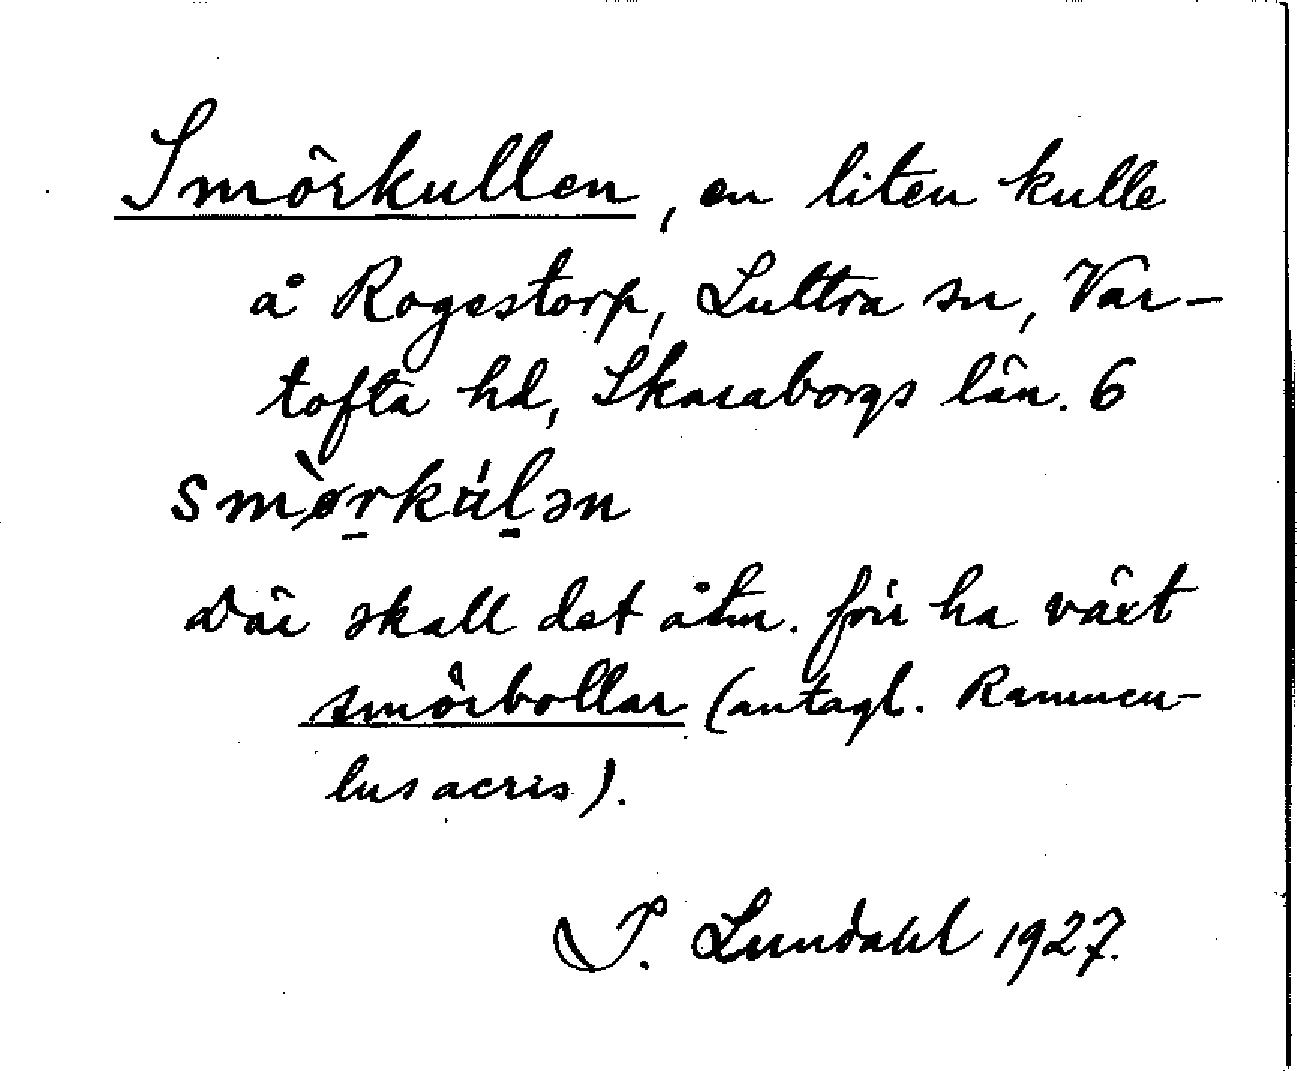 Smörkullen, en liten kulle
å Rogestorp, Luttra sn, Var-
tofta hd, Skaraborgs län. 6
smè̱rkúḻən
Där skall det åtm. förr ha växt
smörbollar (antagl. Ranuncu-
lus acris).
P. Lundahl 1927.